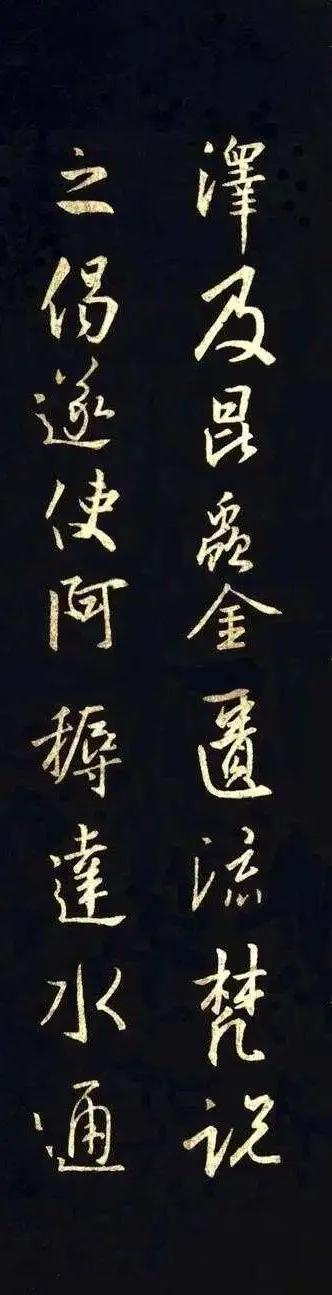 澤及昆蟲金匱流梵説
之偈遂使阿耨達水通